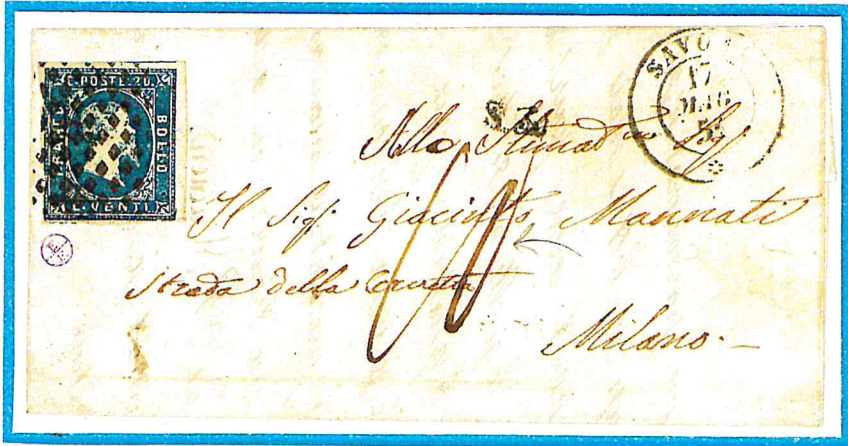 C. POSTE. 20.
FRANCO
BOLLO
C. VENTI.
SAVO
17
MAG
S.
Allo Stimad.mo Sig
Il Sig: Giacinto Mannati
Strada della
Milano.